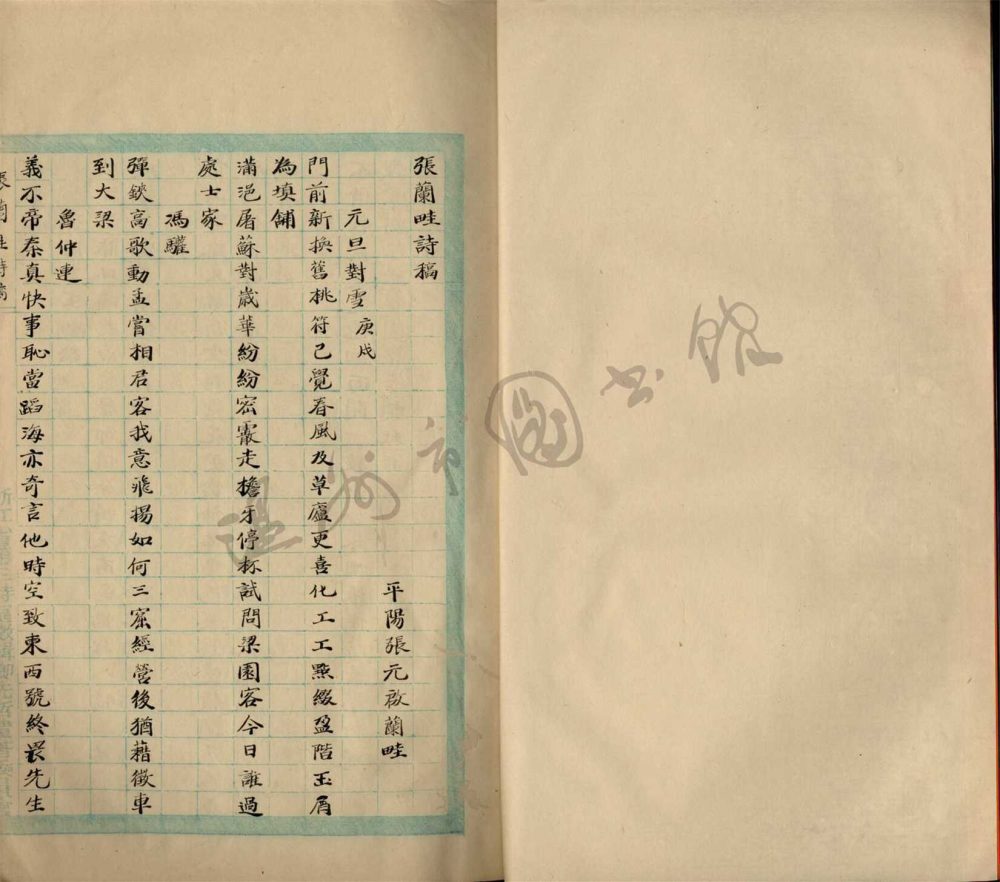 張蘭畦詩稿
平陽張元啟蘭畦
元旦對雪 庚戌
門前新換舊桃符已覺春風及草廬更喜化工工點綴盈階玉屑
為填舖
滿浥屠蘇對歲華紛紛密霰走檐牙停杯試問梁園客今日誰過
處士家
馮驩
彈鋏高歌動孟嘗相君客我意飛揚如何三窟經營後猶藉徵車
到大梁
魯仲連
義不帝秦真快事恥當蹈海亦奇言他時空致東西號終畏先生
張蘭畦詩稿
温州市圖书館